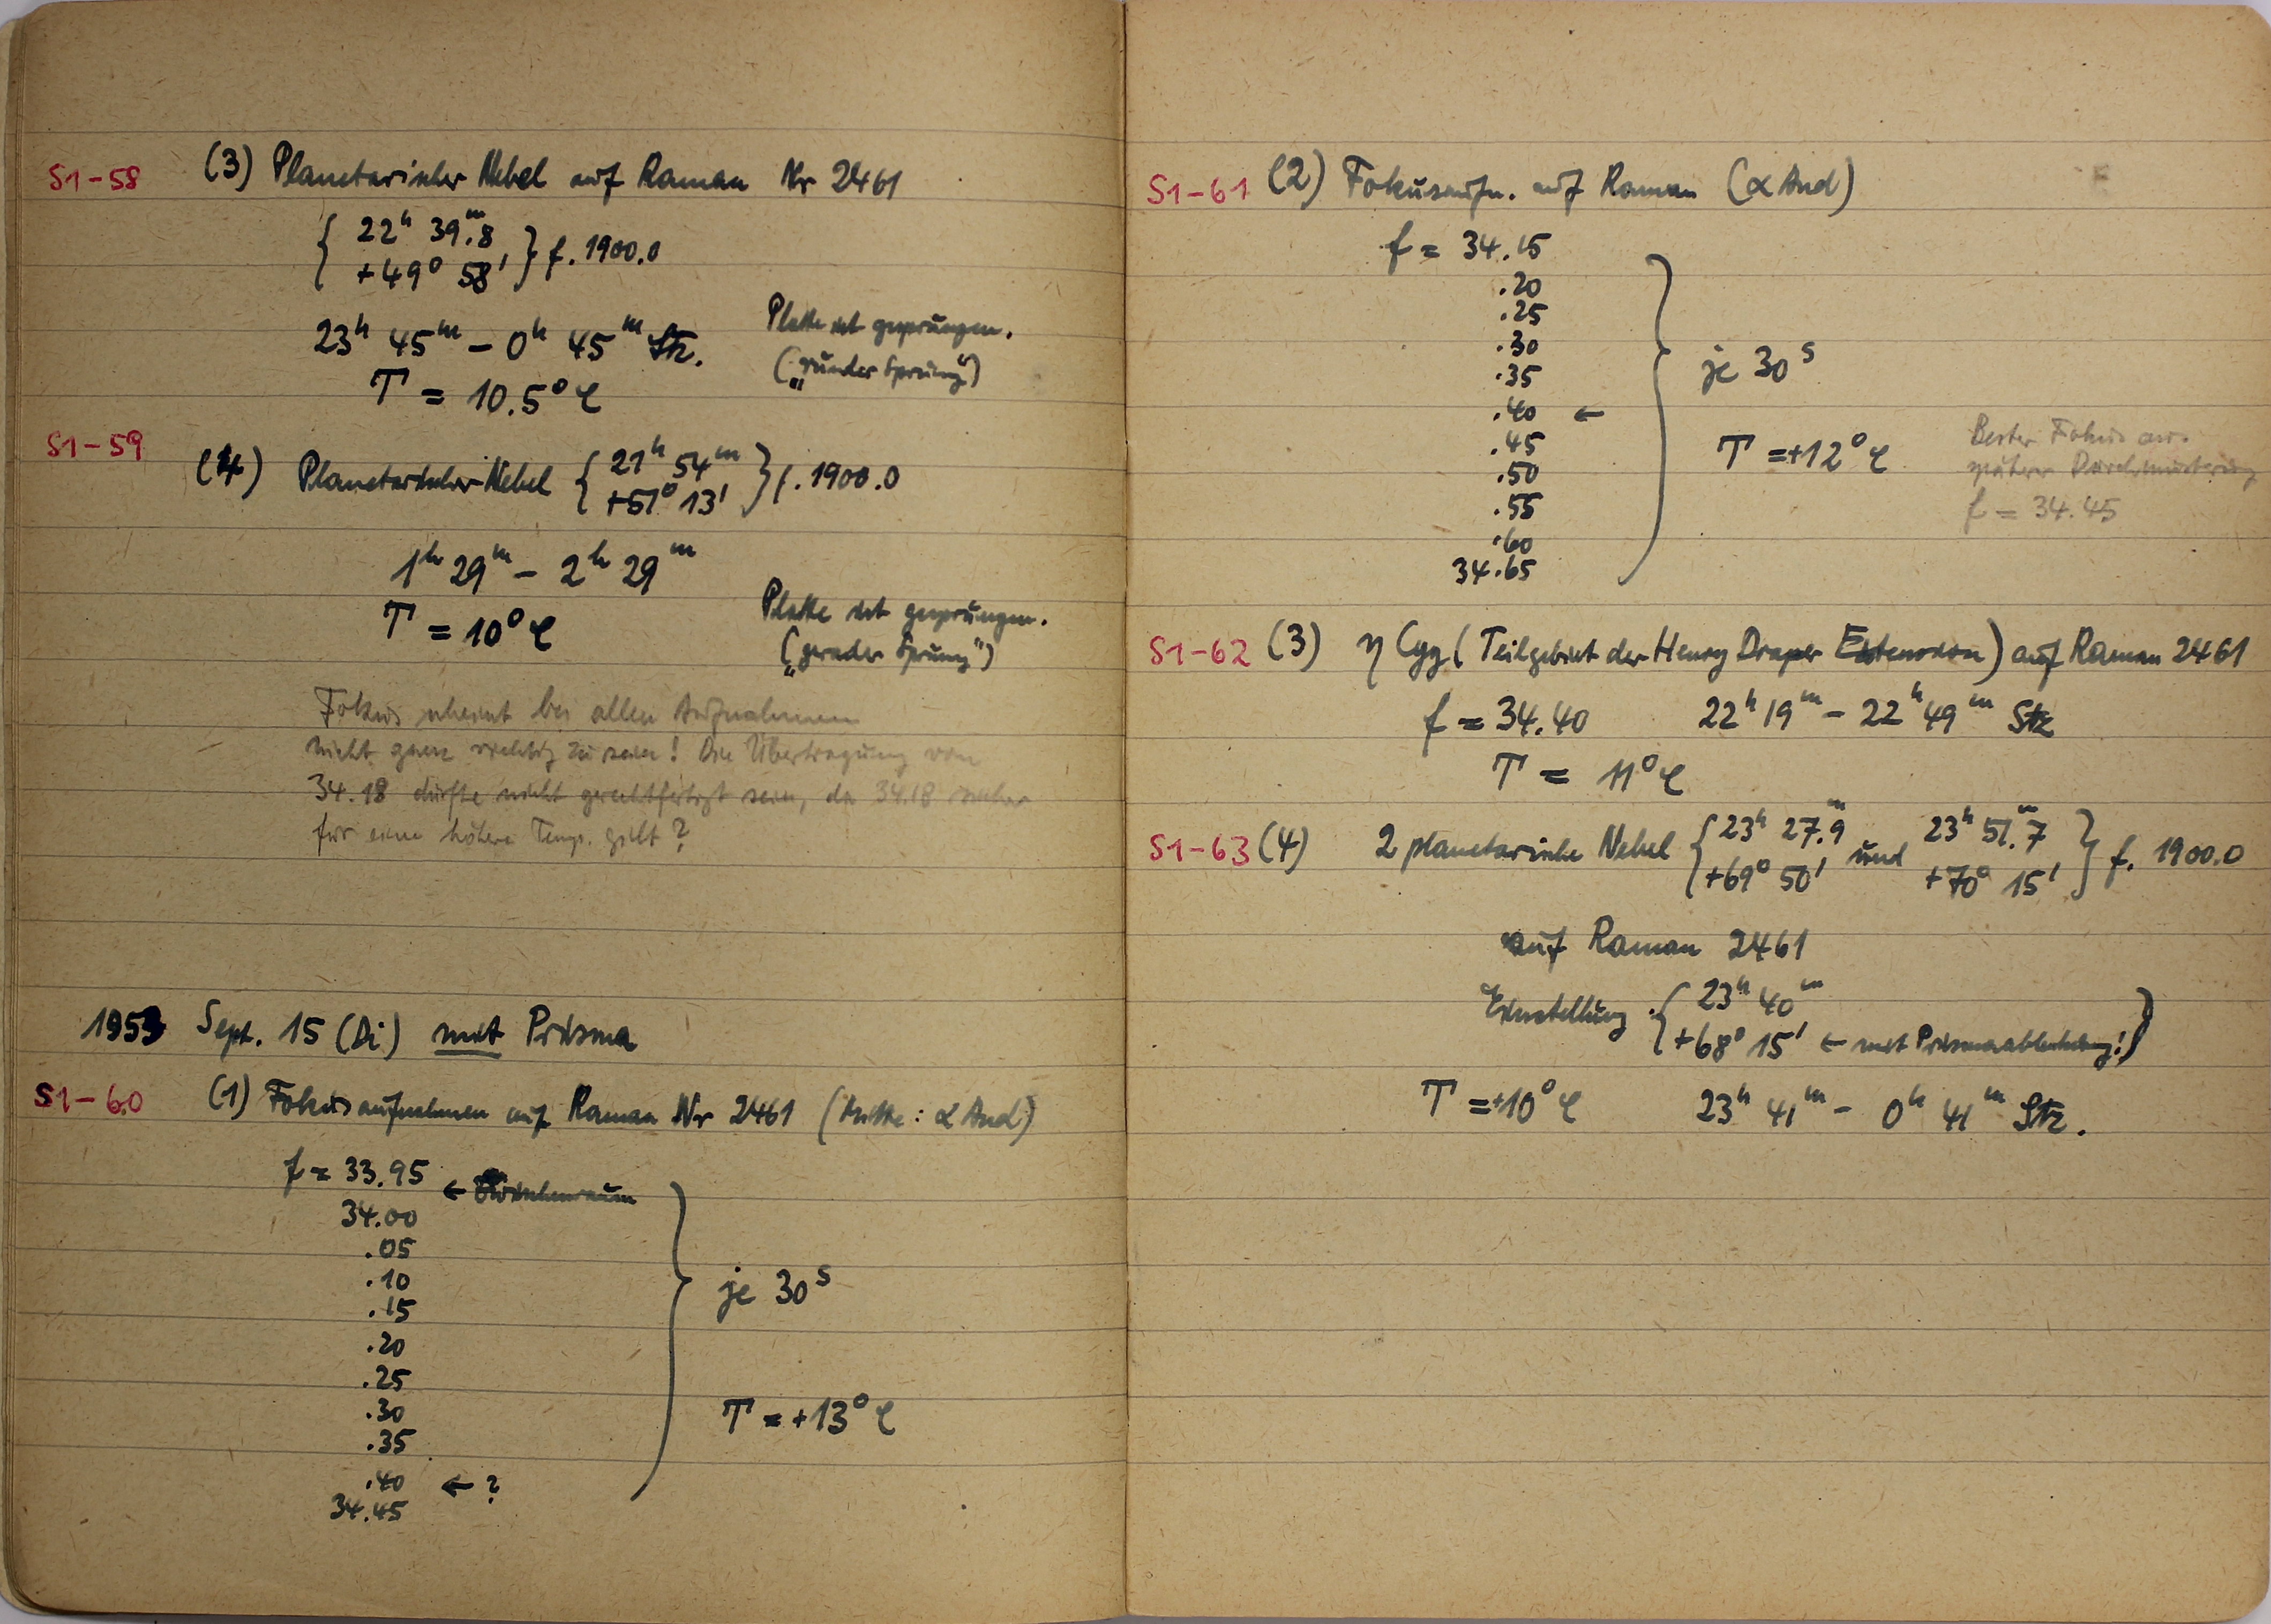 S1-58 (3) Planetarischer Nebel auf Raman Nr 2461
{ 22h 39m.8
+49° 58' } f. 1900.0
23h 45m – 0h 45m Stz.
Platte ist gesprungen.
(„runder Sprung“)
T = 10.5° C
S1-59
(4) Planetarischer Nebel { 21h 54m
+51° 13' } f. 1900.0
1h 29m – 2h 29m
T = 10° C
Platte ist gesprungen.
(„gerader Sprung“)
Fokus scheint bei allen Aufnahmen
nicht ganz richtig zu sein! Die Übertragung von
34.18 dürfte nicht gerechtfertigt sein, da 34.18 sicher
für eine höhere Temp. gilt?
1953 Sept. 15 (Di) mit Prisma
S1-60 (1) Fokusaufnahmen auf Raman Nr 2461 (Mitte: α And)
f = 33.95 ← Zwischenraum
34.00
.05
.10
.15
je 30s
.20
.25
.30
T = +13° C
.35
.40 ← ?
34.45
S1-61 (2) Fokusaufn. auf Raman (α And)
f = 34.15
.20
.25
.30
.35
je 30s
.40 ←
.45
T = +12° C
Bester Fokus aus
späterer Durchmusterung
f = 34.45
.50
.55
.60
34.65
S1-62 (3) η Cyg (Teilgebiet der Henry Draper Extension) auf Raman 2461
f = 34.40 22h 19m – 22h 49m Stz
T = 11° C
S1-63 (4) 2 planetarische Nebel { 23h 27m.9 und 23h 51m.7
+69° 50' +70° 15' } f. 1900.0
auf Raman 2461
Einstellung { 23h 40m
+68° 15' ← mit Prismenablenkung!)
T = +10° C 23h 41m – 0h 41m Stz.